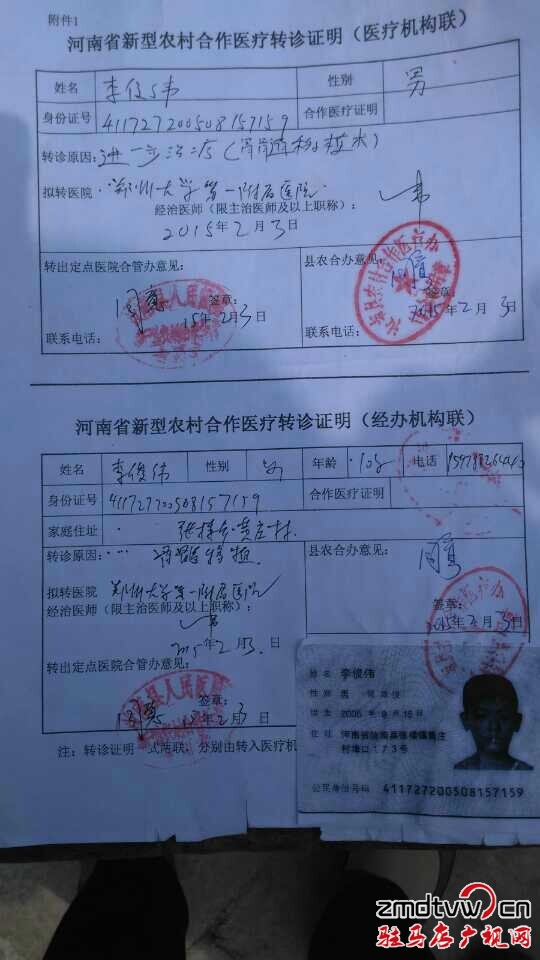 附件1
河南省新型农村合作医疗转诊证明（医疗机构联）
姓名 李俊伟 性别 男
身份证号 411727200508157159 合作医疗证明
转诊原因：进一步治疗（骨髓移植术）
拟转医院 郑州大学第一附属医院
经治医师（限主治医师及以上职称）：
2015年2月3日
转出定点医院合管办意见： 县农合办意见：
签章： 签章：
15年2月3日 2015年2月3日
联系电话： 联系电话：
河南省新型农村合作医疗转诊证明（经办机构联）
姓名 李俊伟 性别 男 年龄 10岁 电话
身份证号 411727200508157159 合作医疗证明
家庭住址 张楼乡黄庄村
转诊原因： 骨髓移植 县农合办意见：
拟转医院 郑州大学第一附属医院
经治医师（限主治医师及以上职称）： 签章：
2015年2月3日 2015年2月3日
转出定点医院合管办意见：
签章：
15年2月3日
注：转诊证明一式两联，分别由转入医疗机
姓名 李俊伟
性别 男 民族 汉
住址 河南省汝南县张楼镇黄庄
村埠口173号
公民身份号码 411727200508157159
zmdtvw.cn
驻马店广视网